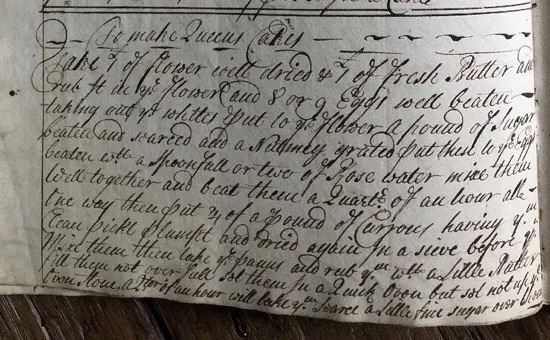 To make Queens Cakes
Take 1 of flower well dried & 1 of Fresh Butter and
rub it in ye flower and 8 or 9 Eggs well beaten
taking out ye whites put to ye flower a pound of Sugar
beaten and searced and a Nutmeg grated put them to ye Eggs
beaten wth a Spoonfull or two of Rose water mix them
well together and beat them a Quartr of an hour all
one way then put 3/4 of a pound of Currons having ym
Clean Pickt Plumpt and dried again in a sieve before ye
Mixe them then take ye panns and rub ym wth a Little Butter
fill them not over full set them in a Quick Oven but set not up ye
Oven stone, a of an hour will bake ym searce a Little fine sugar over